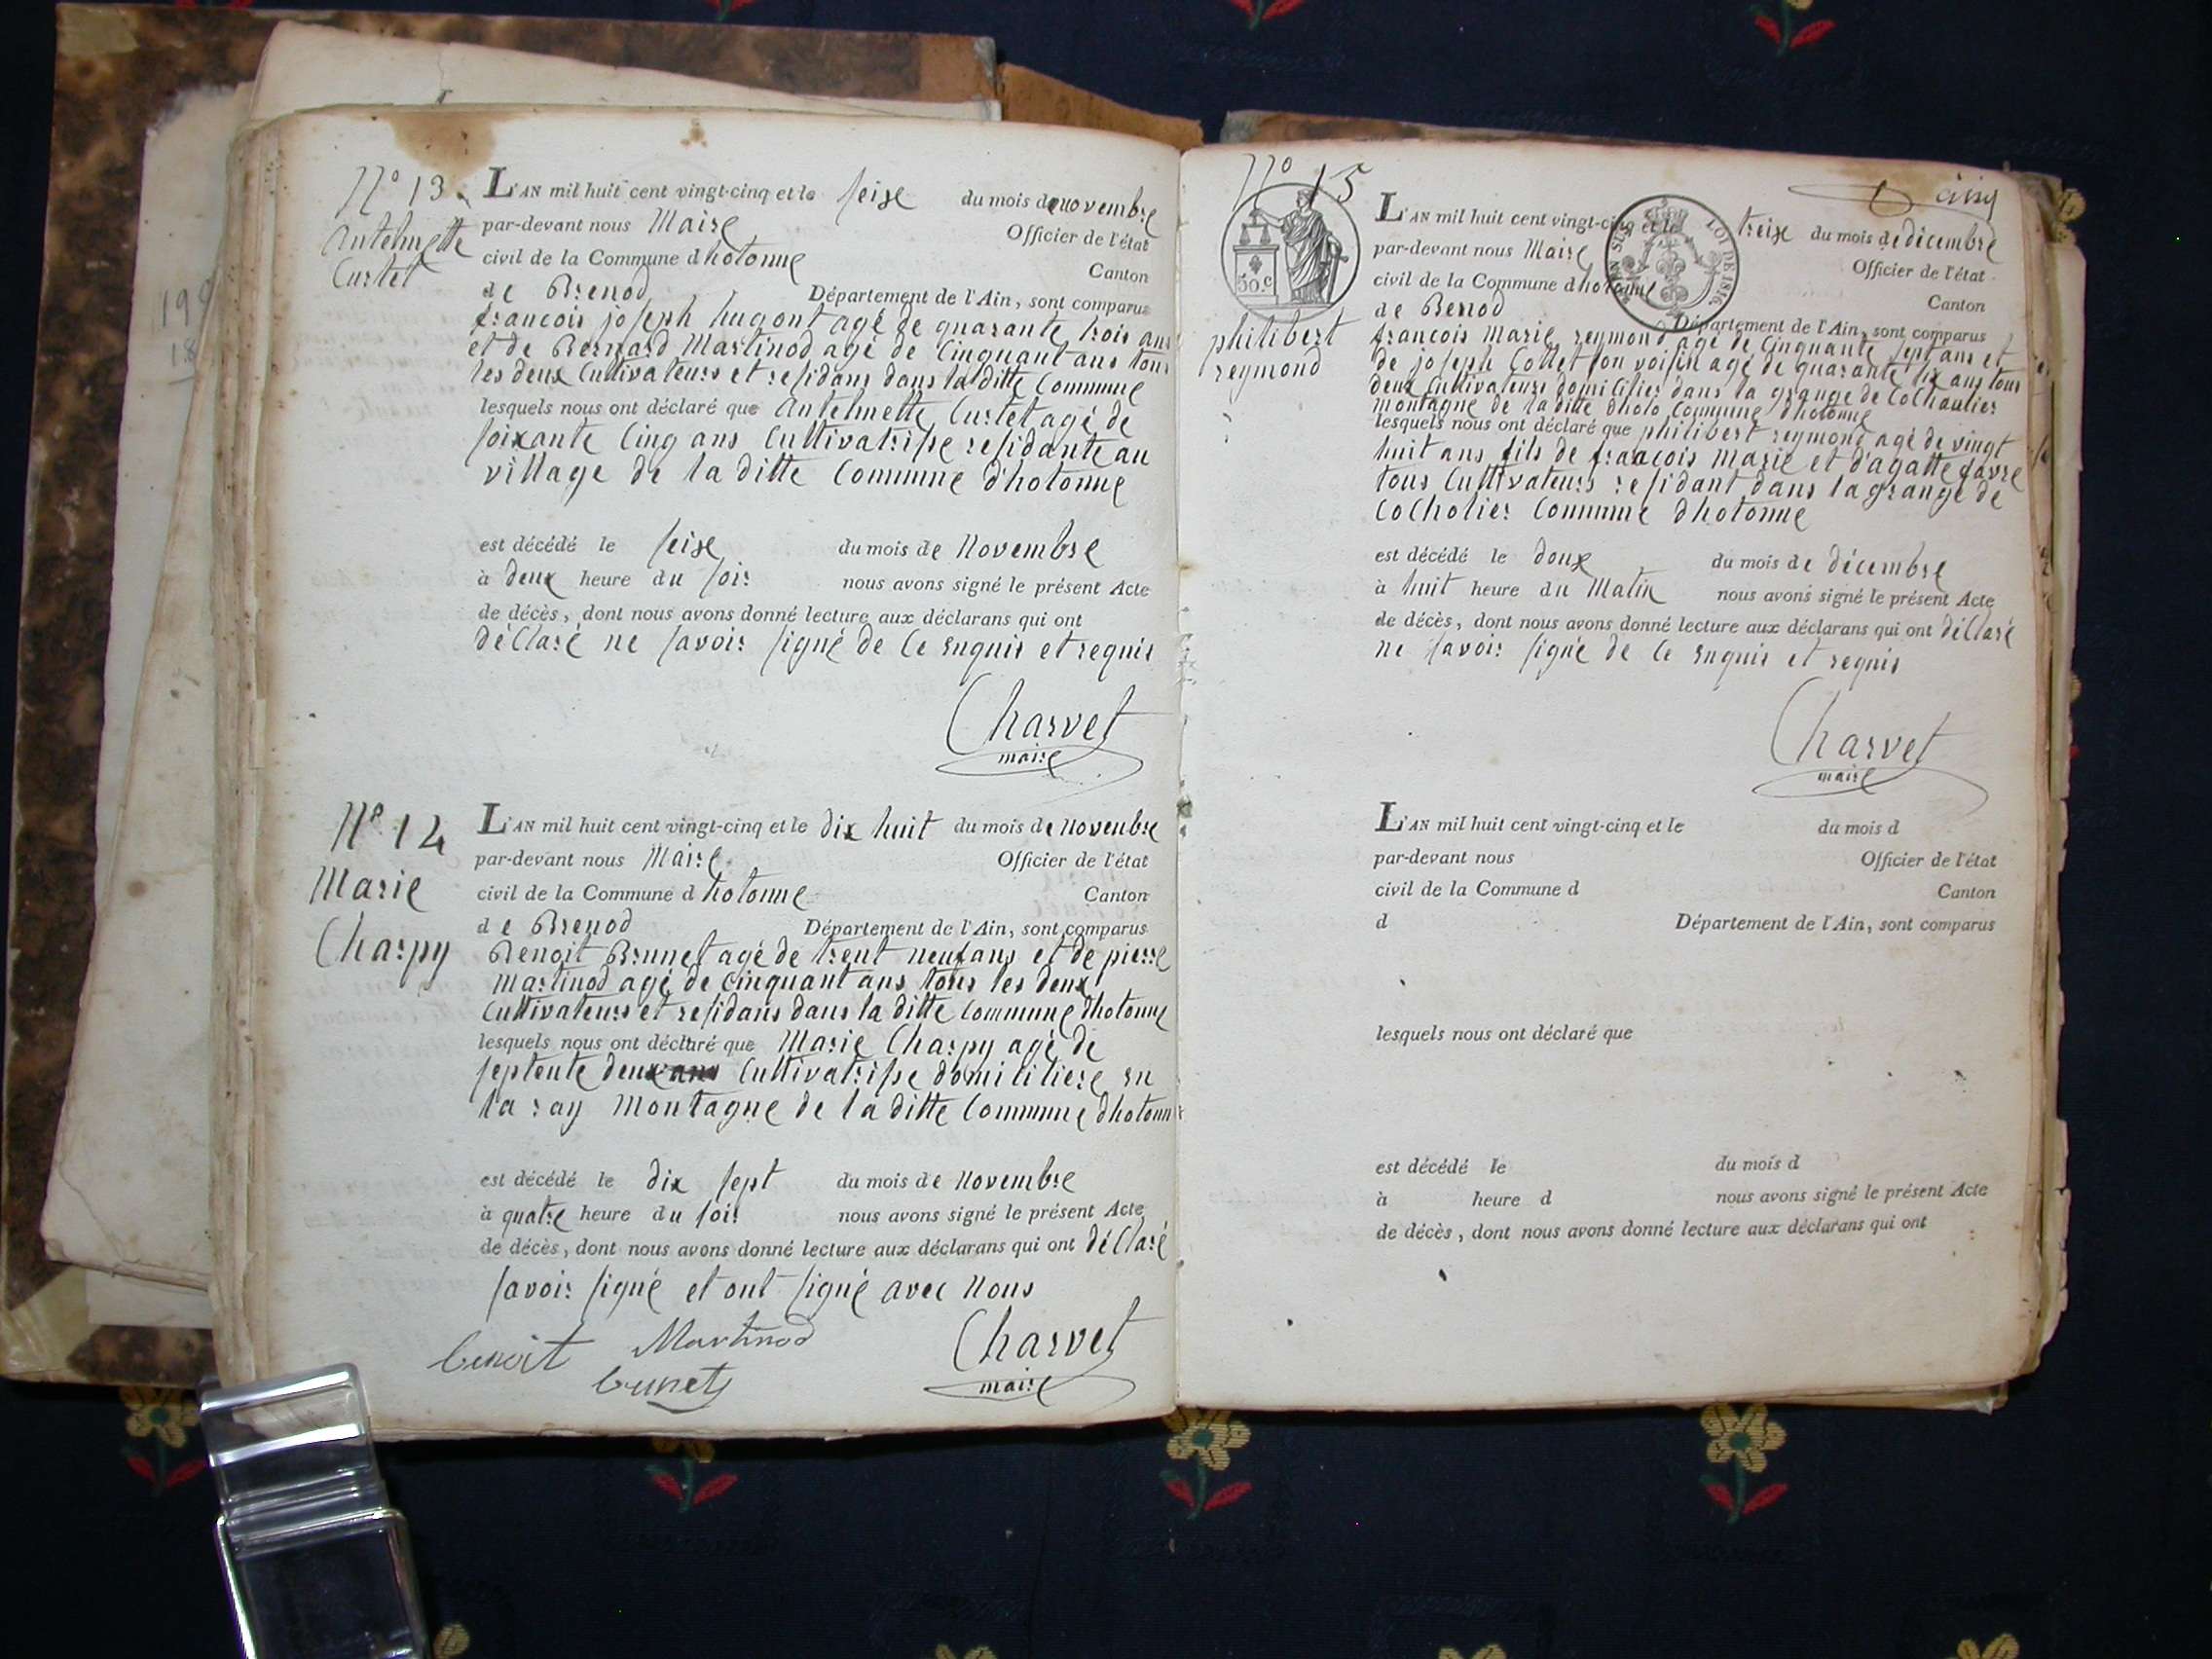 N° 13.
Antelmette
Curtet
L'AN mil huit cent vingt-cinq et le seize du mois de novembre
par-devant nous Maire Officier de l'état
civil de la Commune d hotonne Canton
de Brenod Département de l'Ain, sont comparus
francois joseph hugont agé de quarante trois ans
et de Bernard Martinod agé de Cinquant ans tous
les deux Cultivateurs et residans dans la ditte Commune
lesquels nous ont déclaré que Antelmette Curtet agé de
soixante Cinq ans Cultivatrisse residante au
village de la ditte Commune d'hotonne
est décédé le seize du mois de Novembre
à deux heure du soir nous avons signé le présent Acte
de décès, dont nous avons donné lecture aux déclarans qui ont
déclaré ne savoir signé de ce enquis et requis
Charvet
maire
N° 14
Marie
Charpy
L'AN mil huit cent vingt-cinq et le dix huit du mois de Novenbre
par-devant nous Maire Officier de l'état
civil de la Commune d hotonne Canton
de Brenod Département de l'Ain, sont comparus
Benoit Brunet agé de trent neuf ans et de pierre
Martinod agé de Cinquant ans tous les deux
Cultivateurs et residans dans la ditte Commune dhotonne
lesquels nous ont déclaré que Marie Charpy agé de
septente deux ans Cultivatrisse domiciliere en
la ray Montagne de la ditte Commune dhotonne
est décédé le dix sept du mois de Novembre
à quatre heure du soir nous avons signé le présent Acte
de décès, dont nous avons donné lecture aux déclarans qui ont déclaré
savoir signé et ont signé avec Nous
benoit Martinod Charvet
brunet maire
N° 15
cinq
50 c
LOI DE 1816.
philibert
reymond
L'AN mil huit cent vingt-cinq et le treize du mois de décembre
par-devant nous Maire Officier de l'état
civil de la Commune d hotonne Canton
de Benod Département de l'Ain, sont comparus
francois Marie reymond agé de Cinquante sept ans et
de joseph Collet son voisin agé de quarante six ans tous
deux Cultivateurs domicilier dans la grange de Cochaulier
montagne de la ditte dhoto Commune dhotonne
lesquels nous ont déclaré que philibert reymond agé de vingt
huit ans fils de francois Marie et d'agatte favre
tous Cultivateurs residant dans la grange de
Cocholier Commune dhotonne
est décédé le douze du mois de décembre
à huit heure du Matin nous avons signé le présent Acte
de décès, dont nous avons donné lecture aux déclarans qui ont déclaré
ne savoir signé de ce enquis et requis
Charvet
maire
L'AN mil huit cent vingt-cinq et le du mois d
par-devant nous Officier de l'état
civil de la Commune d Canton
d Département de l'Ain, sont comparus
lesquels nous ont déclaré que
est décédé le du mois d
à heure d nous avons signé le présent Acte
de décès, dont nous avons donné lecture aux déclarans qui ont